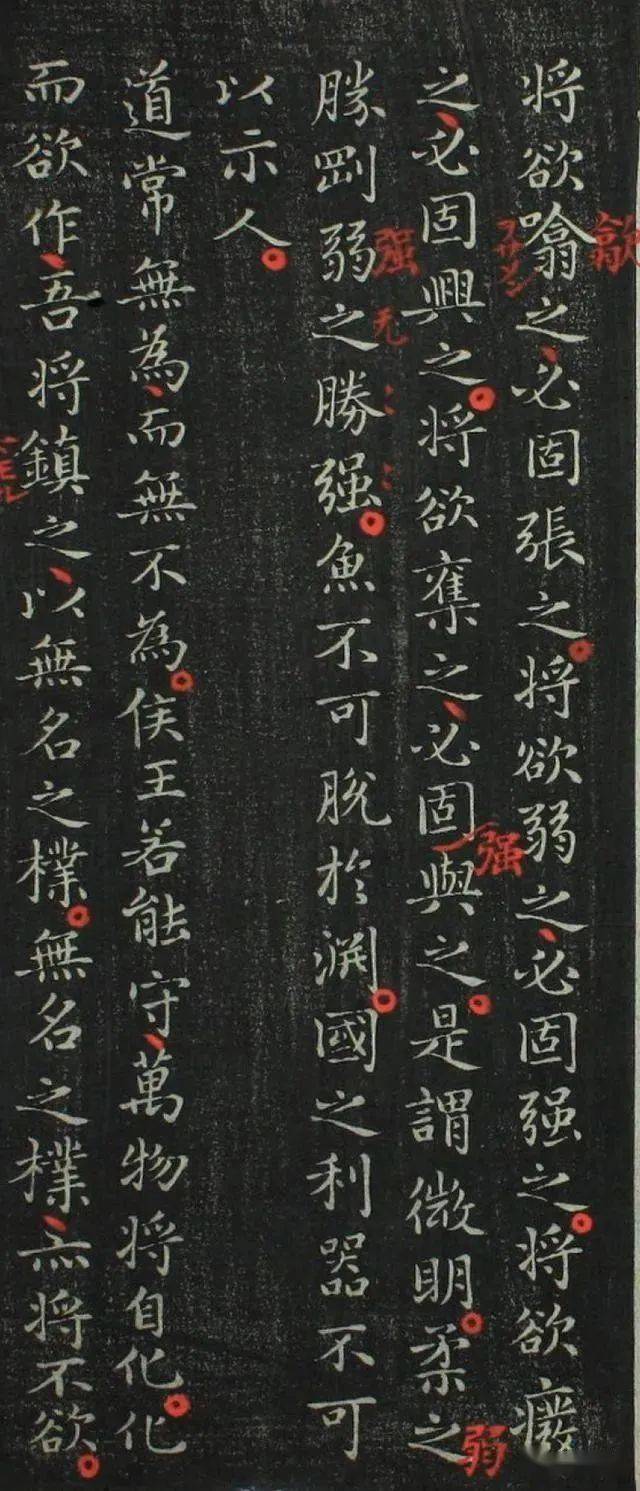 歙
将欲噏之必固張之将欲弱之必固强之将欲癈
强
之必固興之将欲奪之必固與之是謂微明柔之
弱
强 无
勝剛弱之勝强魚不可脱於渊國之利器不可
以示人
道常無為而無不為侯王若能守萬物将自化化
而欲作吾将鎮之以無名之樸無名之樸亦将不欲